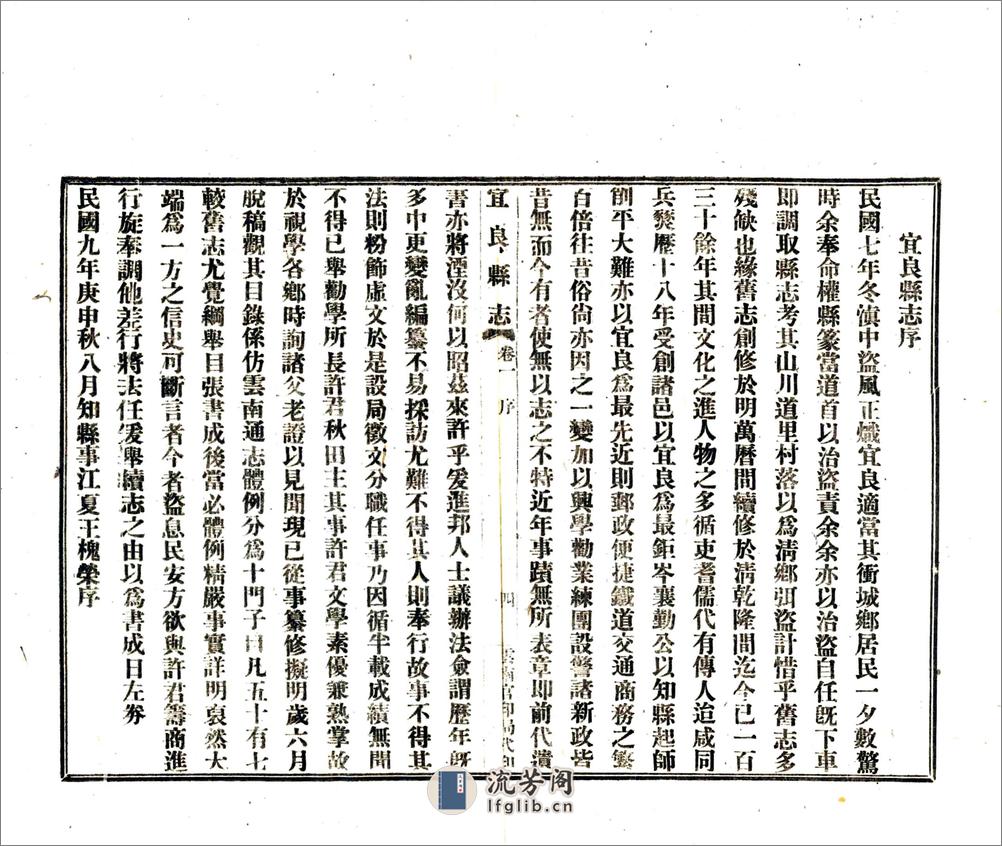 宜良縣志序
民國七年冬滇中盜風正熾宜良適當其衝城鄉居民一夕數驚
時余奉命權縣篆當道首以治盜責余余亦以治盜自任旣下車
即調取縣志考其山川道里村落以爲淸鄉弭盜計惜乎舊志多
殘缺也緣舊志創修於明萬曆間續修於淸乾隆間迄今已一百
三十餘年其間文化之進人物之多循吏耆儒代有傳人迨咸同
兵燹歷十八年受創諸邑以宜良爲最鉅岑襄勤公以知縣起師
削平大難亦以宜良爲最先近則郵政便捷鐵道交通商務之繁
百倍往昔俗尙亦因之一變加以興學勸業練團設警諸新政皆
昔無而今有者使無以志之不特近年事蹟無所表章即前代遺
宜良縣志 卷一 序 四 雲南官印局代印
書亦將湮沒何以昭茲來許乎爰進邦人士議辦法僉謂歷年旣
多中更變亂編纂不易採訪尤難不得其人則奉行故事不得其
法則粉飾虛文於是設局徵文分職任事乃因循半載成績無聞
不得已舉勸學所長許君秋田主其事許君文學素優兼熟掌故
於視學各鄉時詢諸父老證以見聞現已從事纂修擬明歲六月
脫稿觀其目錄係仿雲南通志體例分爲十門子目凡五十有七
較舊志尤覺綱舉目張書成後當必體例精嚴事實詳明裒然大
端爲一方之信史可斷言者今者盜息民安方欲與許君籌商進
行旋奉調他差行將去任爰舉續志之由以爲書成日左劵
民國九年庚申秋八月知縣事江夏王槐榮序
流芳阁
lfglib.cn